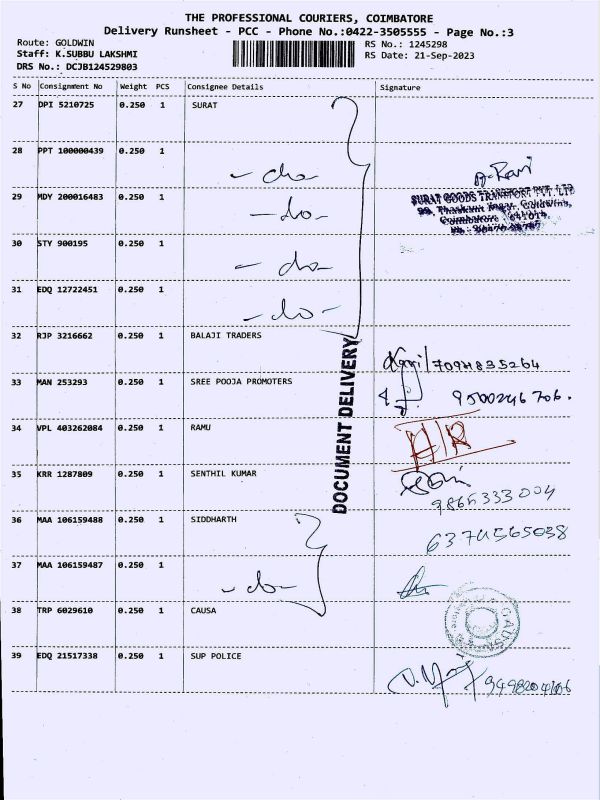 THE PROFESSIONAL COURIERS, COIMBATORE
Delivery Runsheet - PCC - Phone No.:0422-3505555 - Page No.:3
Route: GOLDWIN
Staff: K.SUBBU LAKSHMI
DRS No.: DCJB124529803
RS No.: 1245298
RS Date: 21-Sep-2023
S No Consignmnent No Weight PCS Consignee Details Signature
27 DPI 5210725 0.250 1 SURAT
28 PPT 100000439 0.250 1
-do-
29 MDY 200016483 0.250 1
-do-
SURAT GOODS TRANSPORT PVT. LTD
Coimbatore - 641014
30 STY 900195 0.250 1
-do-
31 EDQ 12722451 0.250 1
-do-
32 RJP 3216662 0.250 1 BALAJI TRADERS
7094835264
33 MAN 253293 0.250 1 SREE POOJA PROMOTERS
9500246706.
34 VPL 403262084 0.250 1 RAMU
DOCUMENT DELIVERY
35 KRR 1287809 0.250 1 SENTHIL KUMAR
9865333004
36 MAA 106159488 0.250 1 SIDDHARTH
6374565038
37 MAA 106159487 0.250 1
-do-
38 TRP 6029610 0.250 1 CAUSA
CAUSA
39 EDQ 21517338 0.250 1 SUP POLICE